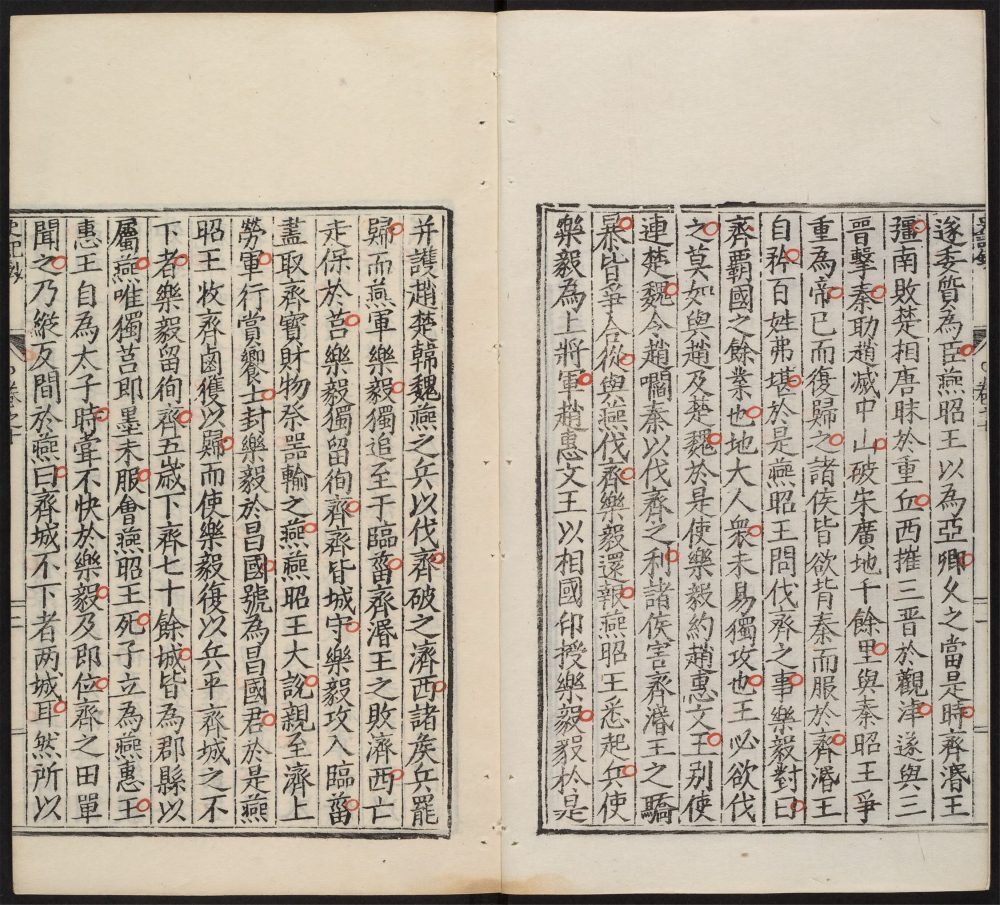 遂委質為臣燕昭王以為亞卿久之當是時齊湣王
彊南敗楚相唐昧於重丘西摧三晉於觀津遂與三
晉擊秦助趙滅中山破宋廣地千餘里與秦昭王爭
重為帝已而復歸之諸侯皆欲背秦而服於齊湣王
自矜百姓弗堪於是燕昭王問伐齊之事樂毅對曰
齊覇國之餘業也地大人衆未易獨攻也王必欲伐
之莫如與趙及楚魏於是使樂毅約趙惠文王別使
連楚魏令趙嚪秦以伐齊之利諸侯害齊湣王之驕
暴皆爭合從與燕伐齊樂毅還報燕昭王悉起兵使
樂毅為上將軍趙惠文王以相國印授樂毅毅於是
并護趙楚韓魏燕之兵以伐齊破之濟西諸矦兵罷
歸而燕軍樂毅獨追至于臨菑齊湣王之敗濟西亡
走保於莒樂毅獨留徇齊齊皆城守樂毅攻入臨菑
盡取齊寶財物祭噐輸之燕燕昭王大說親至濟上
勞軍行賞饗士封樂毅於昌國號為昌國君於是燕
昭王收齊鹵獲以歸而使樂毅復以兵平齊城之不
下者樂毅留徇齊五歲下齊七十餘城皆為郡縣以
屬燕唯獨莒即墨未服會燕昭王死子立為燕惠王
惠王自為太子時甞不快於樂毅及即位齊之田單
聞之乃縱反間於燕曰齊城不下者两城耳然所以